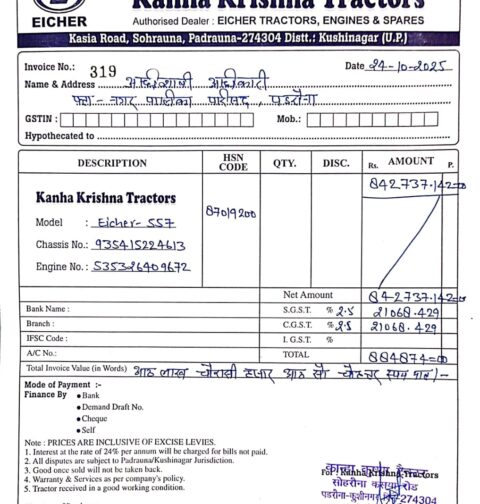 EICHER
Kanha Krishna Tractors
Authorised Dealer : EICHER TRACTORS, ENGINES & SPARES
Kasia Road, Sohrauna, Padrauna-274304 Distt.: Kushinagar (U.P.)
Invoice No.: 319 Date 24-10-2025
Name & Address अधिशाषी अधिकारी
नगर पालिका परिषद, पडरौना
GSTIN : Mob.:
Hypothecated to
DESCRIPTION HSN CODE QTY. DISC. Rs. AMOUNT P.
842737.142=00
Kanha Krishna Tractors
Model : Eicher-557 87019200
Chassis No.: 935415224613
Engine No.: 535326409672
Net Amount 842737.142=00
Bank Name : S.G.S.T. % 2.5 21068.429
Branch : C.G.S.T. % 2.5 21068.429
IFSC Code : I. GS.T. %
A/C No.: TOTAL 884874=00
Total Invoice Value (in Words) आठ लाख चौरासी हजार आठ सौ चौहत्तर रुपया मात्र।-
Mode of Payment :-
Finance By • Bank
• Demand Draft No.
• Cheque
• Self
Note : PRICES ARE INCLUSIVE OF EXCISE LEVIES.
1. Interest at the rate of 24% per annum will be charged for bills not paid.
2. All disputes are subject to Padrauna/Kushinagar Jurisdiction.
3. Good once sold will not be taken back.
4. Warranty & Services as per company's policy.
5. Tractor received in a good working condition.
कान्हा कृष्णा ट्रैक्टर्स
For : Kanha Krishna Tractors
सोहरौना कसया रोड
पडरौना-कुशीनगर 274304